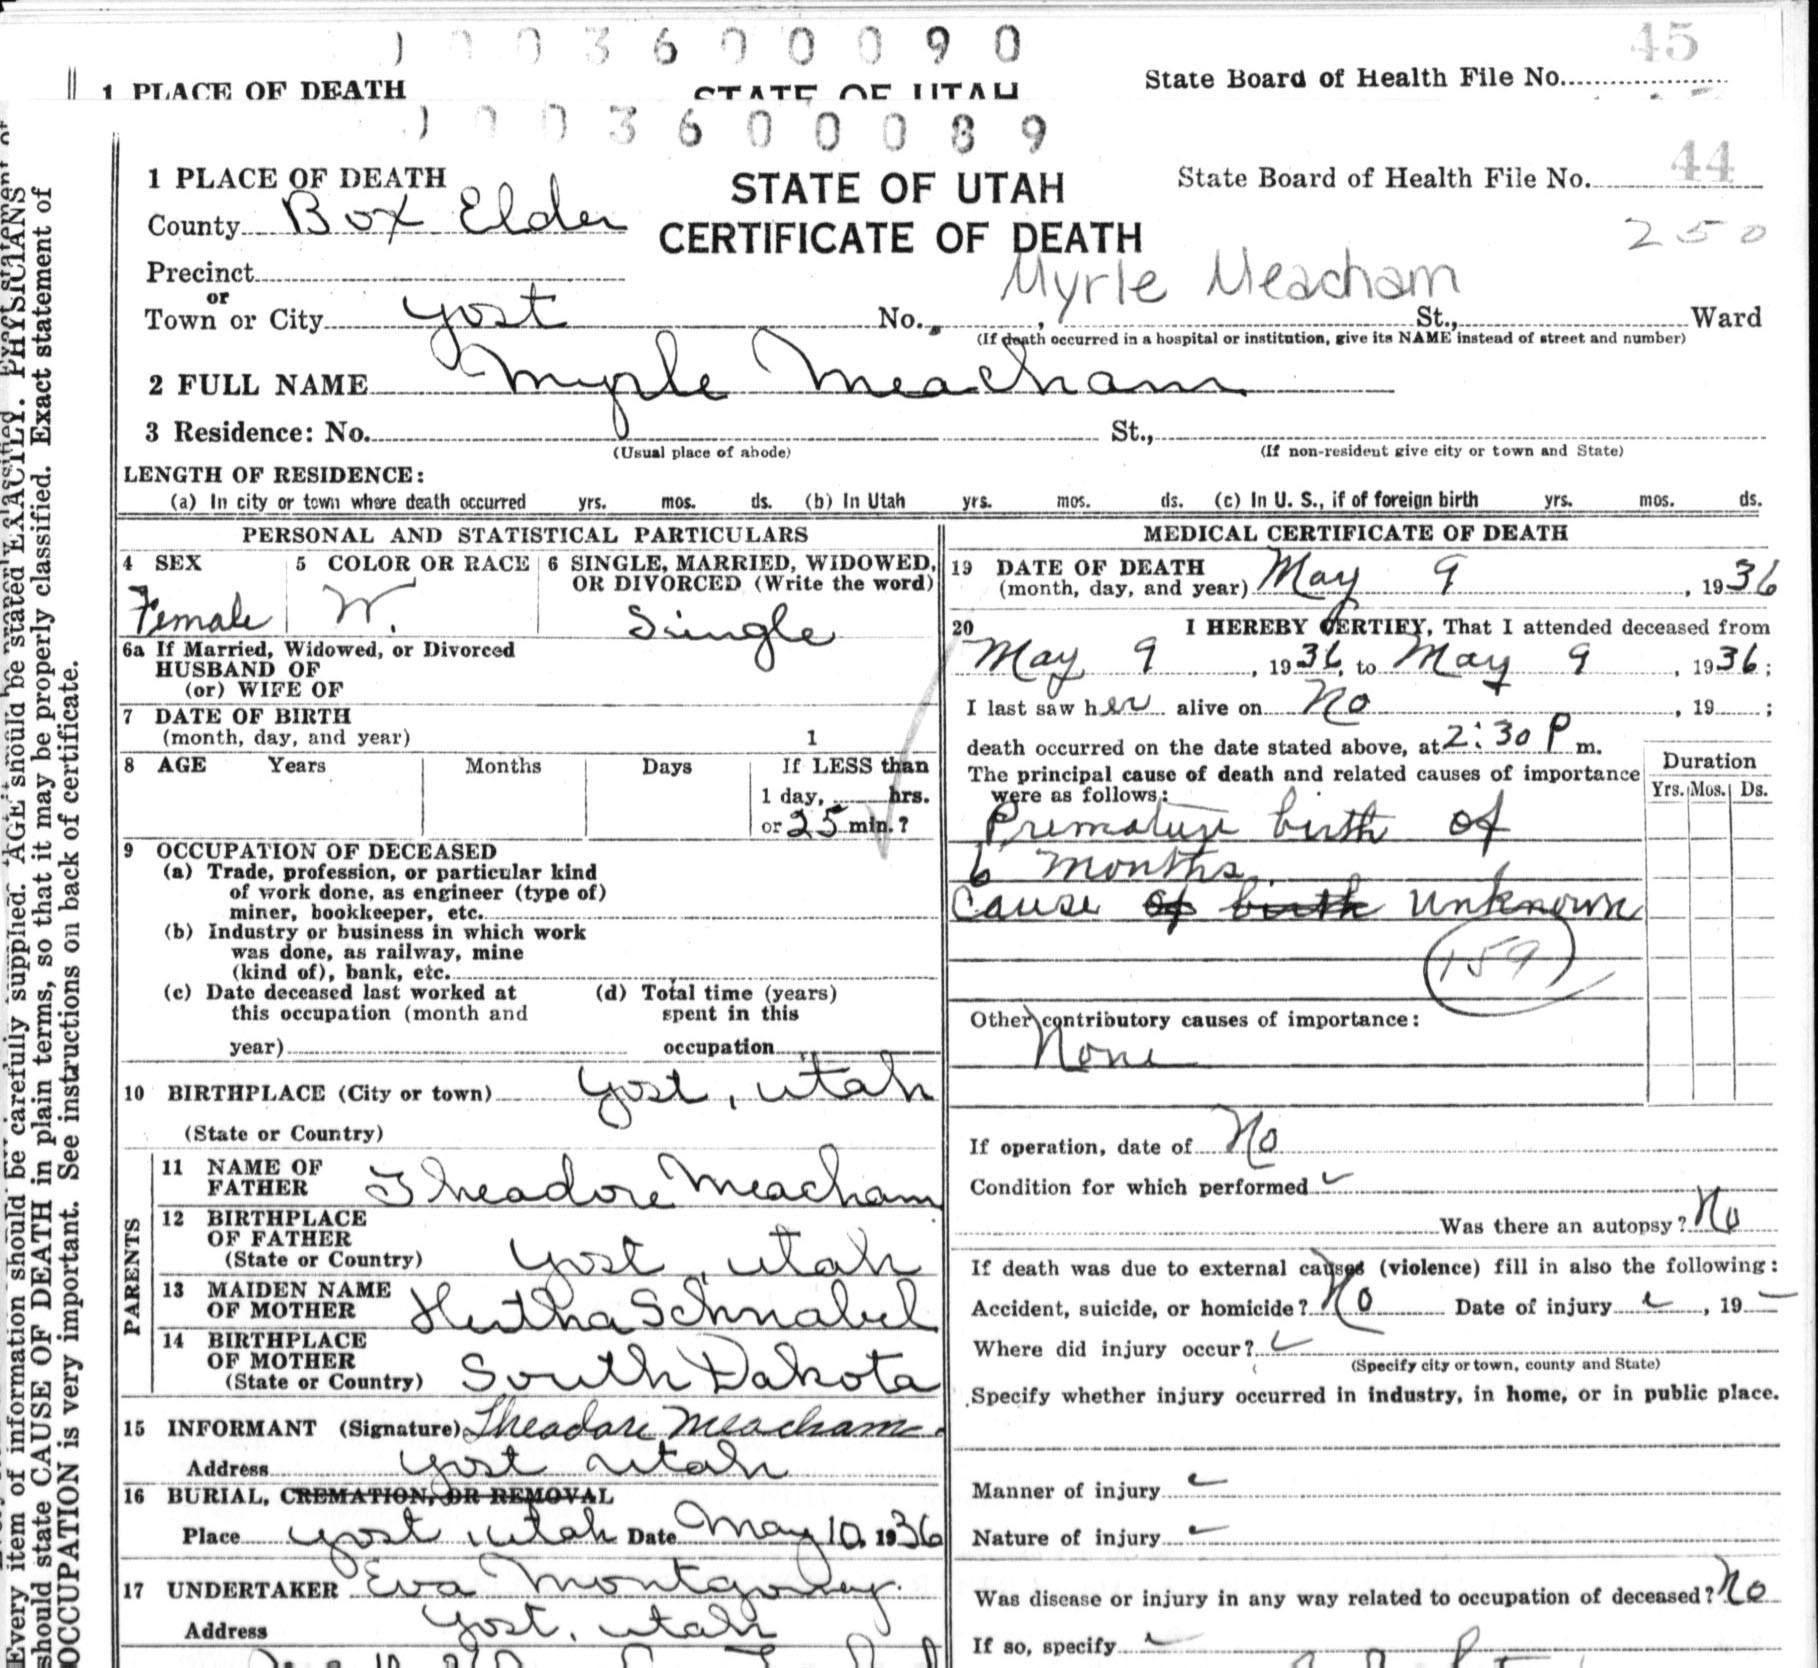 1 0 0 3 6 0 0 0 9 0
45
1 PLACE OF DEATH STATE OF UTAH State Board of Health File No.
1 0 0 3 6 0 0 0 8 9
44
1 PLACE OF DEATH STATE OF UTAH State Board of Health File No.
County Box Elder CERTIFICATE OF DEATH 250
Precinct Myrle Meacham
or
Town or City Yost No. , St., Ward
(If death occurred in a hospital or institution, give its NAME instead of street and number)
2 FULL NAME Myrle Meacham
3 Residence: No. St.,
(Usual place of abode) (If non-resident give city or town and State)
LENGTH OF RESIDENCE:
(a) In city or town where death occurred yrs. mos. ds. (b) In Utah yrs. mos. ds. (c) In U. S., if of foreign birth yrs. mos. ds.
PERSONAL AND STATISTICAL PARTICULARS
4 SEX 5 COLOR OR RACE 6 SINGLE, MARRIED, WIDOWED,
OR DIVORCED (Write the word)
Female W. Single
6a If Married, Widowed, or Divorced
HUSBAND OF
(or) WIFE OF
7 DATE OF BIRTH
(month, day, and year) 1
8 AGE Years Months Days If LESS than
1 day, hrs.
or 25 min.?
9 OCCUPATION OF DECEASED
(a) Trade, profession, or particular kind
of work done, as engineer (type of)
miner, bookkeeper, etc.
(b) Industry or business in which work
was done, as railway, mine
(kind of), bank, etc.
(c) Date deceased last worked at (d) Total time (years)
this occupation (month and spent in this
year) occupation
10 BIRTHPLACE (City or town) Yost, Utah
(State or Country)
PARENTS
11 NAME OF
FATHER Theadore Meacham
12 BIRTHPLACE
OF FATHER
(State or Country) Yost, Utah
13 MAIDEN NAME
OF MOTHER Hertha Schnabel
14 BIRTHPLACE
OF MOTHER
(State or Country) South Dakota
15 INFORMANT (Signature) Theadore Meacham.
Address Yost Utah
16 BURIAL, CREMATION, OR REMOVAL
Place Yost Utah Date May 10, 1936
17 UNDERTAKER Eva Montgomery.
Address Yost, Utah
MEDICAL CERTIFICATE OF DEATH
19 DATE OF DEATH
(month, day, and year) May 9, 1936
20 I HEREBY CERTIFY, That I attended deceased from
May 9, 1936, to May 9, 1936;
I last saw her alive on No, 19 ;
death occurred on the date stated above, at 2:30 P m.
The principal cause of death and related causes of importance
were as follows:
Duration
Yrs. Mos. Ds.
Premature birth of
6 months.
Cause of birth Unknown
159
Other contributory causes of importance:
None
If operation, date of No
Condition for which performed
Was there an autopsy? No
If death was due to external causes (violence) fill in also the following:
Accident, suicide, or homicide? No Date of injury , 19
Where did injury occur?
(Specify city or town, county and State)
Specify whether injury occurred in industry, in home, or in public place.
Manner of injury
Nature of injury
Was disease or injury in any way related to occupation of deceased? No
If so, specify
Every item of information should be carefully supplied. AGE should be stated EXACTLY. PHYSICIANS
should state CAUSE OF DEATH in plain terms, so that it may be properly classified. Exact statement of
OCCUPATION is very important. See instructions on back of certificate.